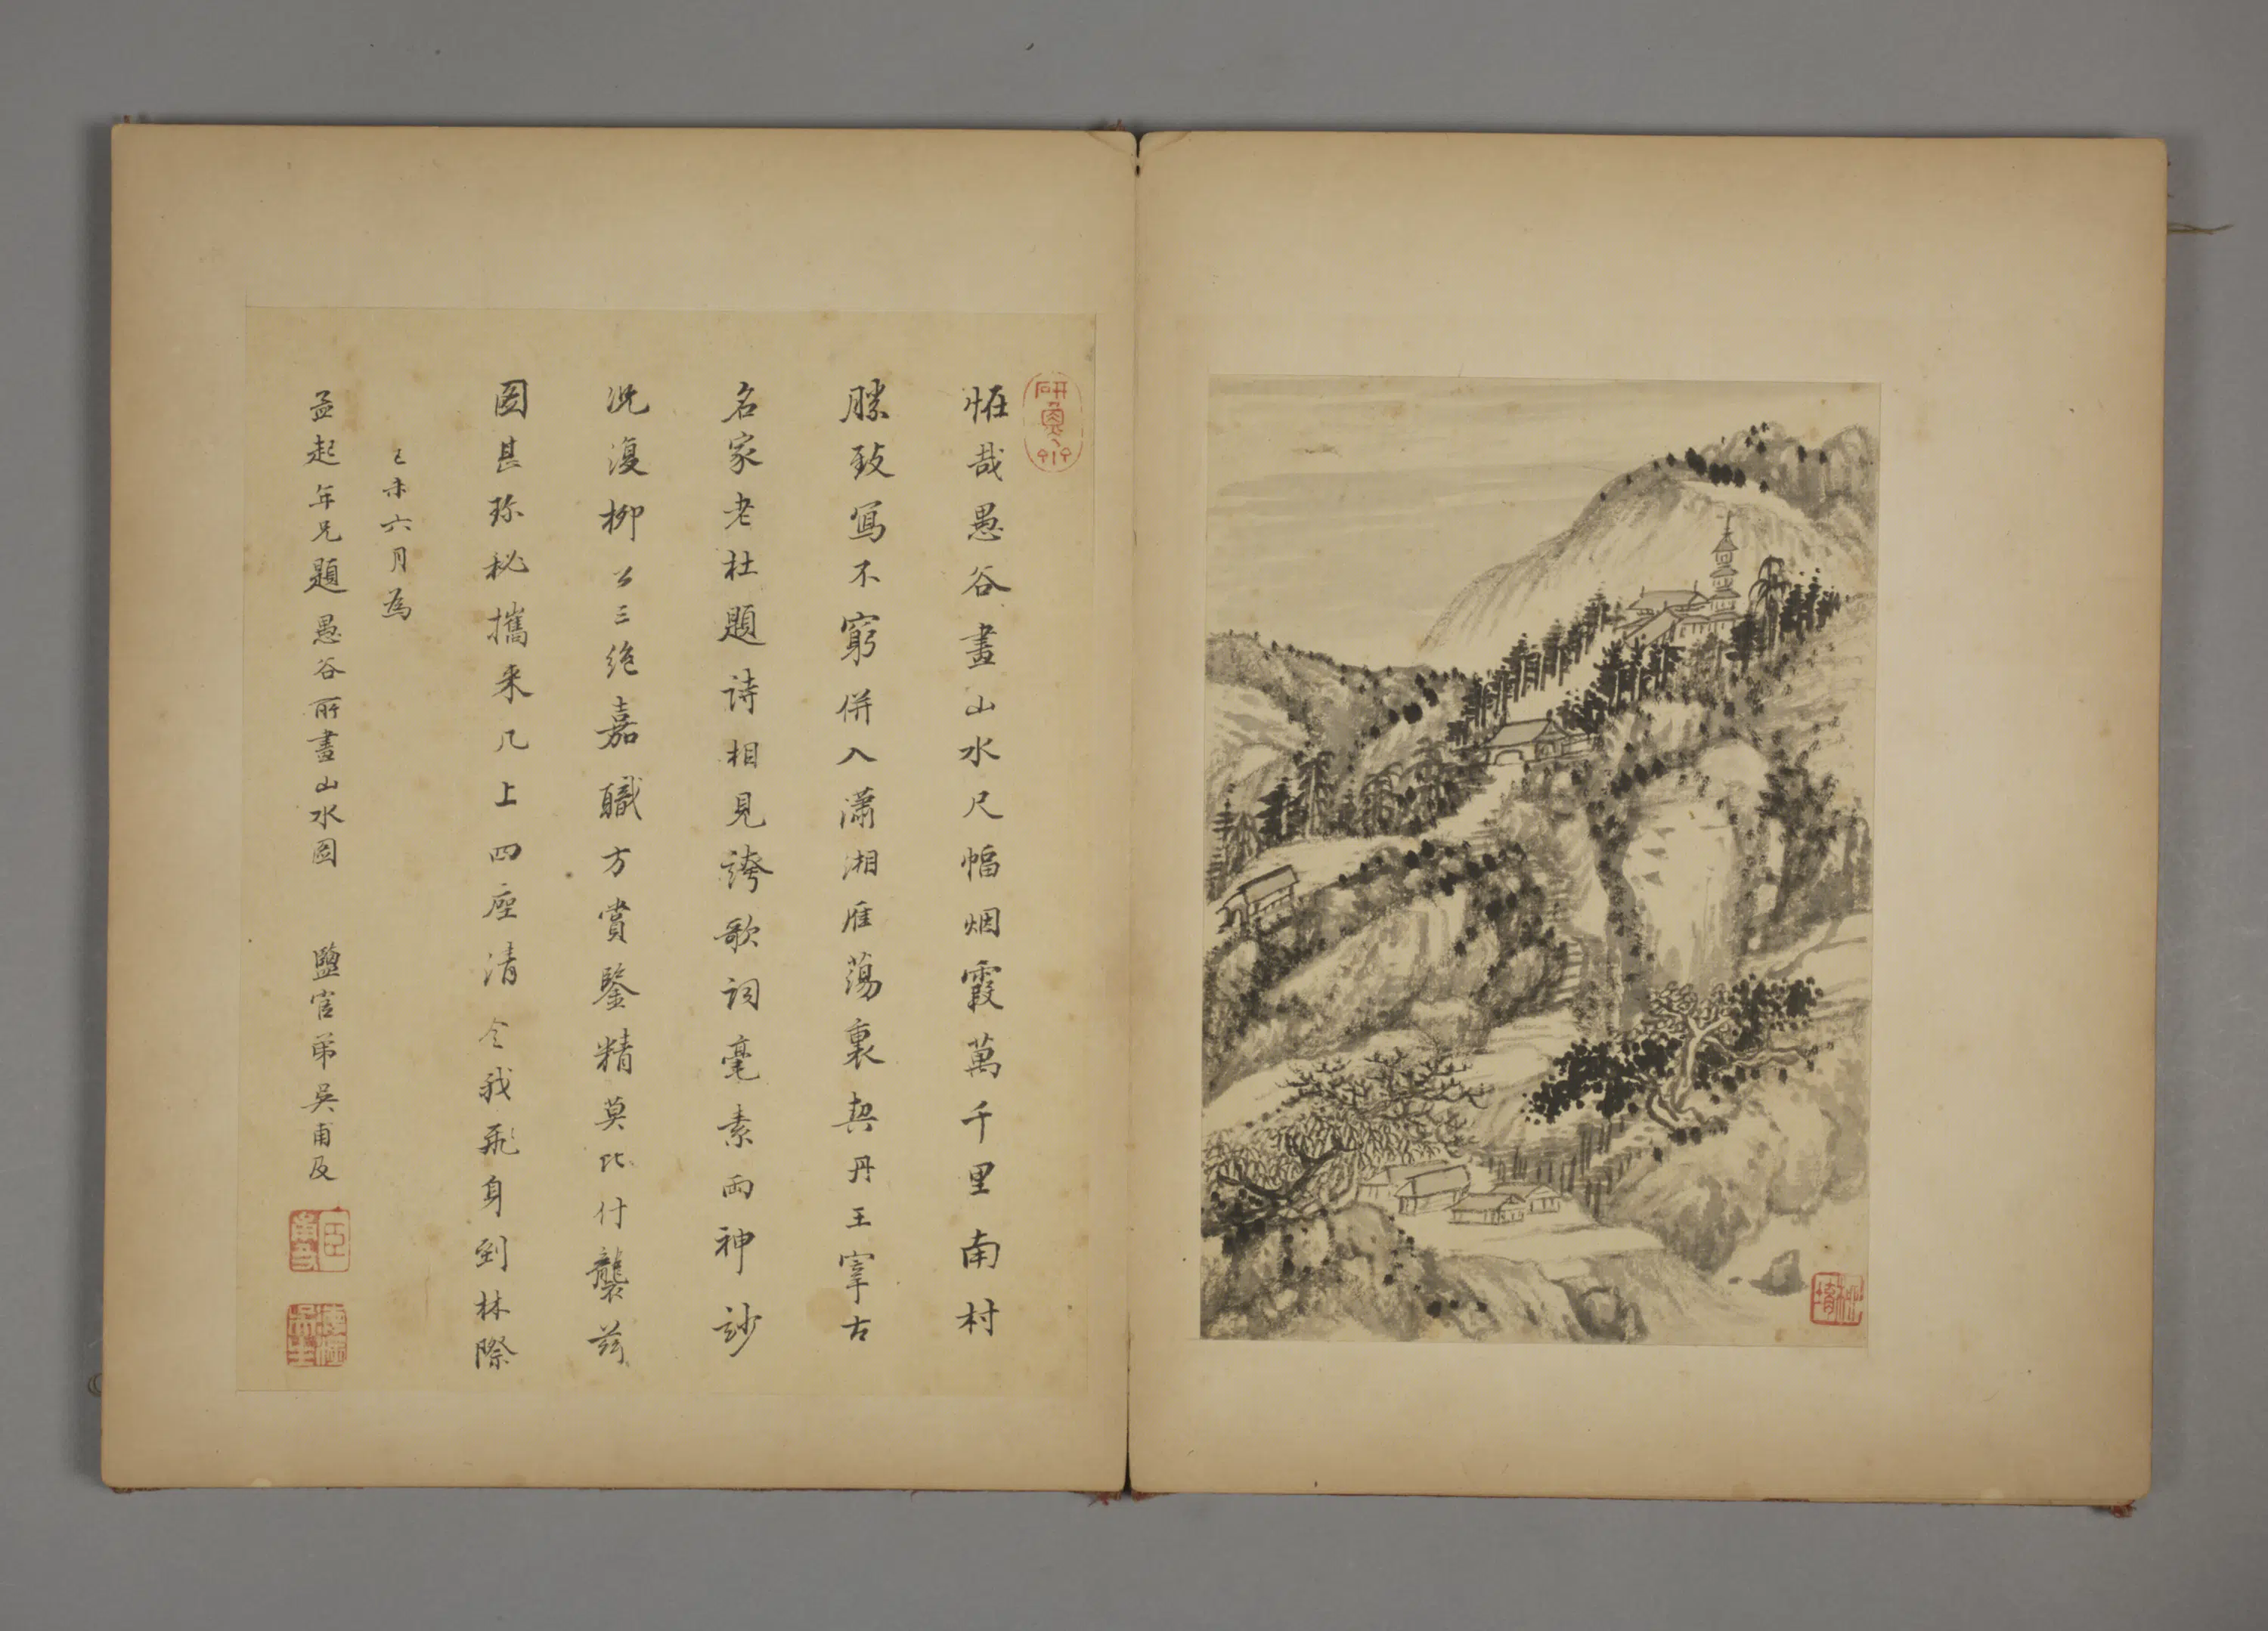 恠哉愚谷畫山水尺幅烟霞萬千里南村
勝致寫不窮併入瀟湘雁蕩裏契丹王宰古
名家老杜題詩相見誇歌詞毫素兩神妙
況復柳公三絶嘉職方賞鑒精莫比付襲茲
圖甚珎秘攜来几上四座清令我飛身到林際
己未六月為
孟起年兄題愚谷所畫山水圖 鹽官弟吳甫及